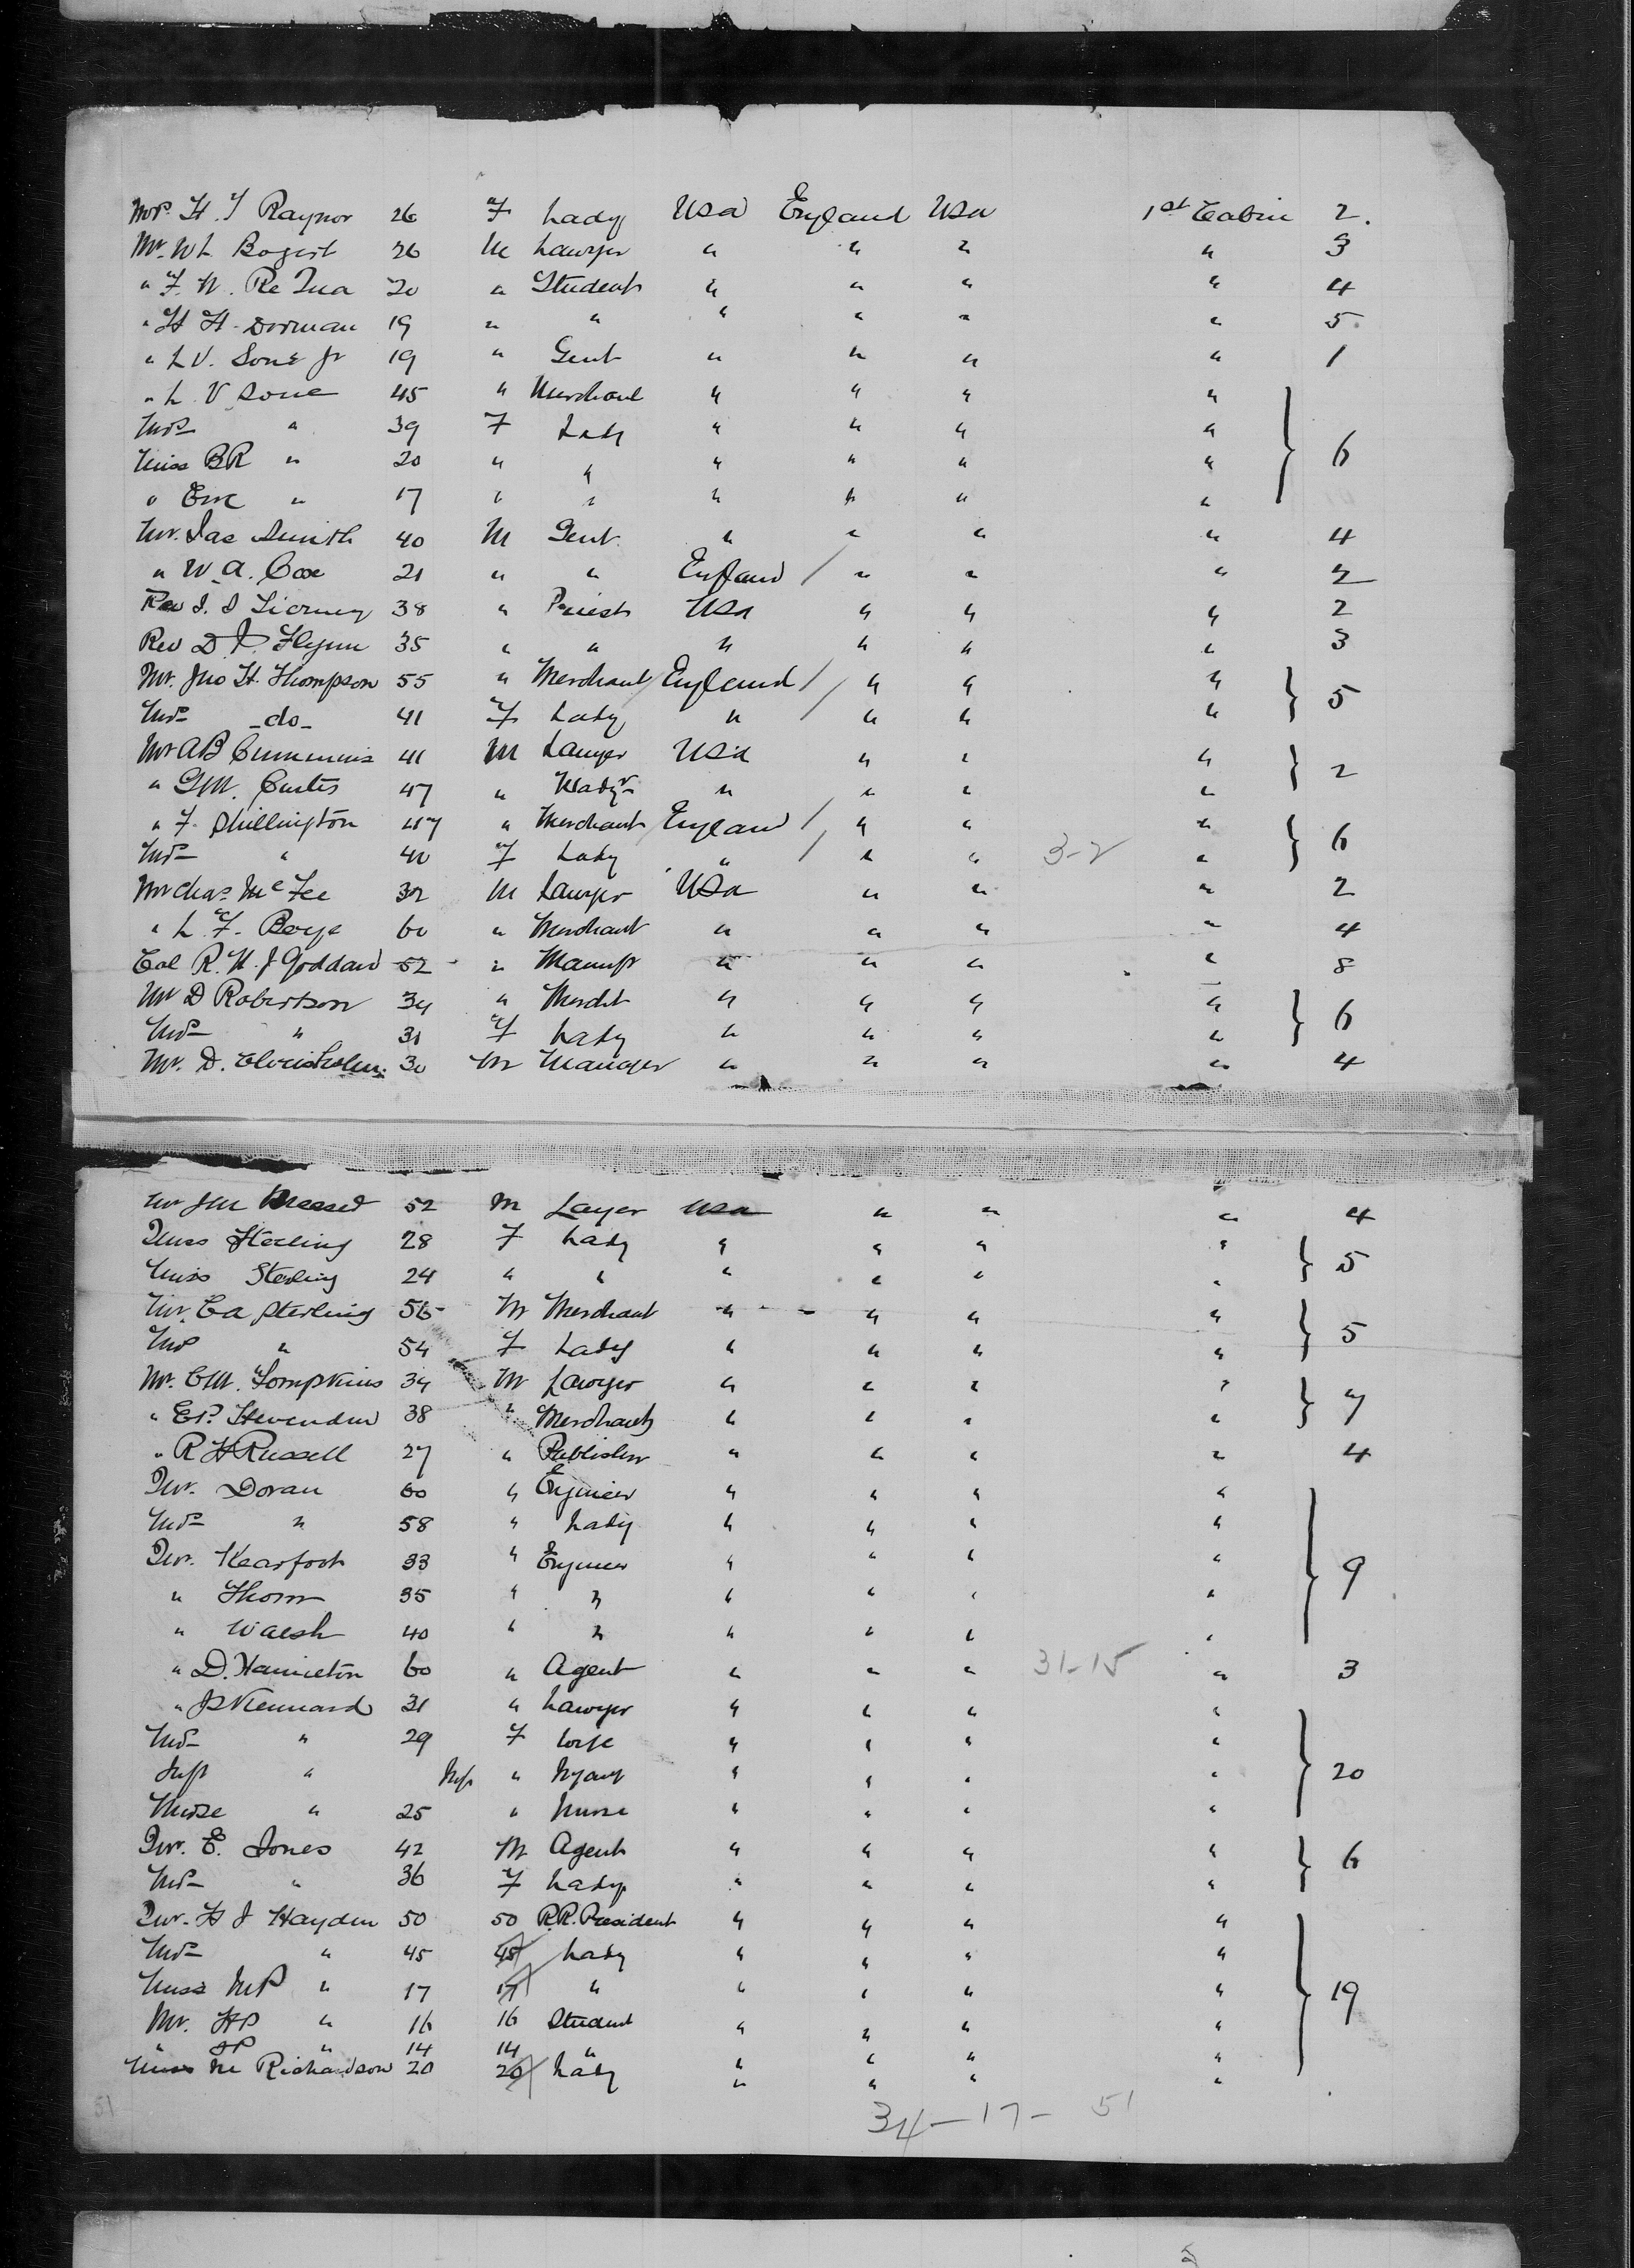 Mrs. H. T Raynor 26 F Lady USA England USA 1st Cabin 2.
Mr. W L Bogert 26 M Lawyer " " " " 3
" F. W. Re Qua 20 " Student " " " " 4
" H H. Dorman 19 " " " " " " 5
" L V. Sone Jr 19 " Gent " " " " 1
" L V Sone 45 " Merchant " " " "
Mrs " 39 F Lady " " " " 6
Miss BR " 20 " " " " " "
" " 17 " " " " " "
Mr. Jas Smith 40 M Gent " " " " 4
" W. A. Coxe 21 " " England / " " "
Rev J. J Tierney 38 " Priest USA " " " 2
Rev D. J. Flynn 35 " " " " " " 3
Mr. Jno H. Thompson 55 " Merchant / England / " " " 5
Mrs -do- 41 F Lady " / " " "
Mr AB Cummins 41 M Lawyer USA " " " 2
" GM. Curtis 47 " " " " "
" F. Shillington 47 " Merchant / England / " " " 6
Mrs " 40 F Lady " / " " 3-2 "
Mr Chas. McFee 32 M Lawyer USA " " " 2
" L. F. 60 " Merchant " " " " 4
Col R. H. J Goddard 52 " Manufr " " " " 8
Mr D Robertson 34 " Merch't " " " " 6
Mrs " 31 F Lady " " " "
Mr. D. Chrisholm. 30 M Manager " " " " 4
Mr JM 52 M Layer USA " " " 4
Miss Sterling 28 F Lady " " " " 5
Miss Sterling 24 " " " " " "
Mr. Ca Sterling 56 M Merchant " " " " 5
Mrs " 54 F Lady " " " "
Mr. CM. Tompkins 34 M Lawyer " " " " 7
" EP. 38 " Merchant " " " "
" R H Russell 27 " Publisher " " " " 4
Mr. Doran 60 " Engineer " " " " 9
Mrs " 58 " Lady " " " "
Mr. Kearfoot 33 " Engineer " " " "
" Thorn 35 " " " " " "
" Walsh 40 " " " " " "
" D. Hamilton 60 " Agent " " " 31-15 " 3
" JP Kennard 31 " Lawyer " " " " 20
Mrs " 29 F Wife " " " "
Inft " Inft " Infant " " " "
Nurse " 25 " Nurse " " " "
Mr. E. Jones 42 M Agent " " " " 6
Mrs " 36 F Lady " " " "
Mr. H J Hayden 50 50 R.R. President " " " " 19
Mrs " 45 45 Lady " " " "
Miss MP " 17 17 " " " " "
Mr. HP " 16 16 Student " " " "
" JP " 14 14 " " " " "
Miss M Richardson 20 20 Lady " " " "
51 34-17- 51